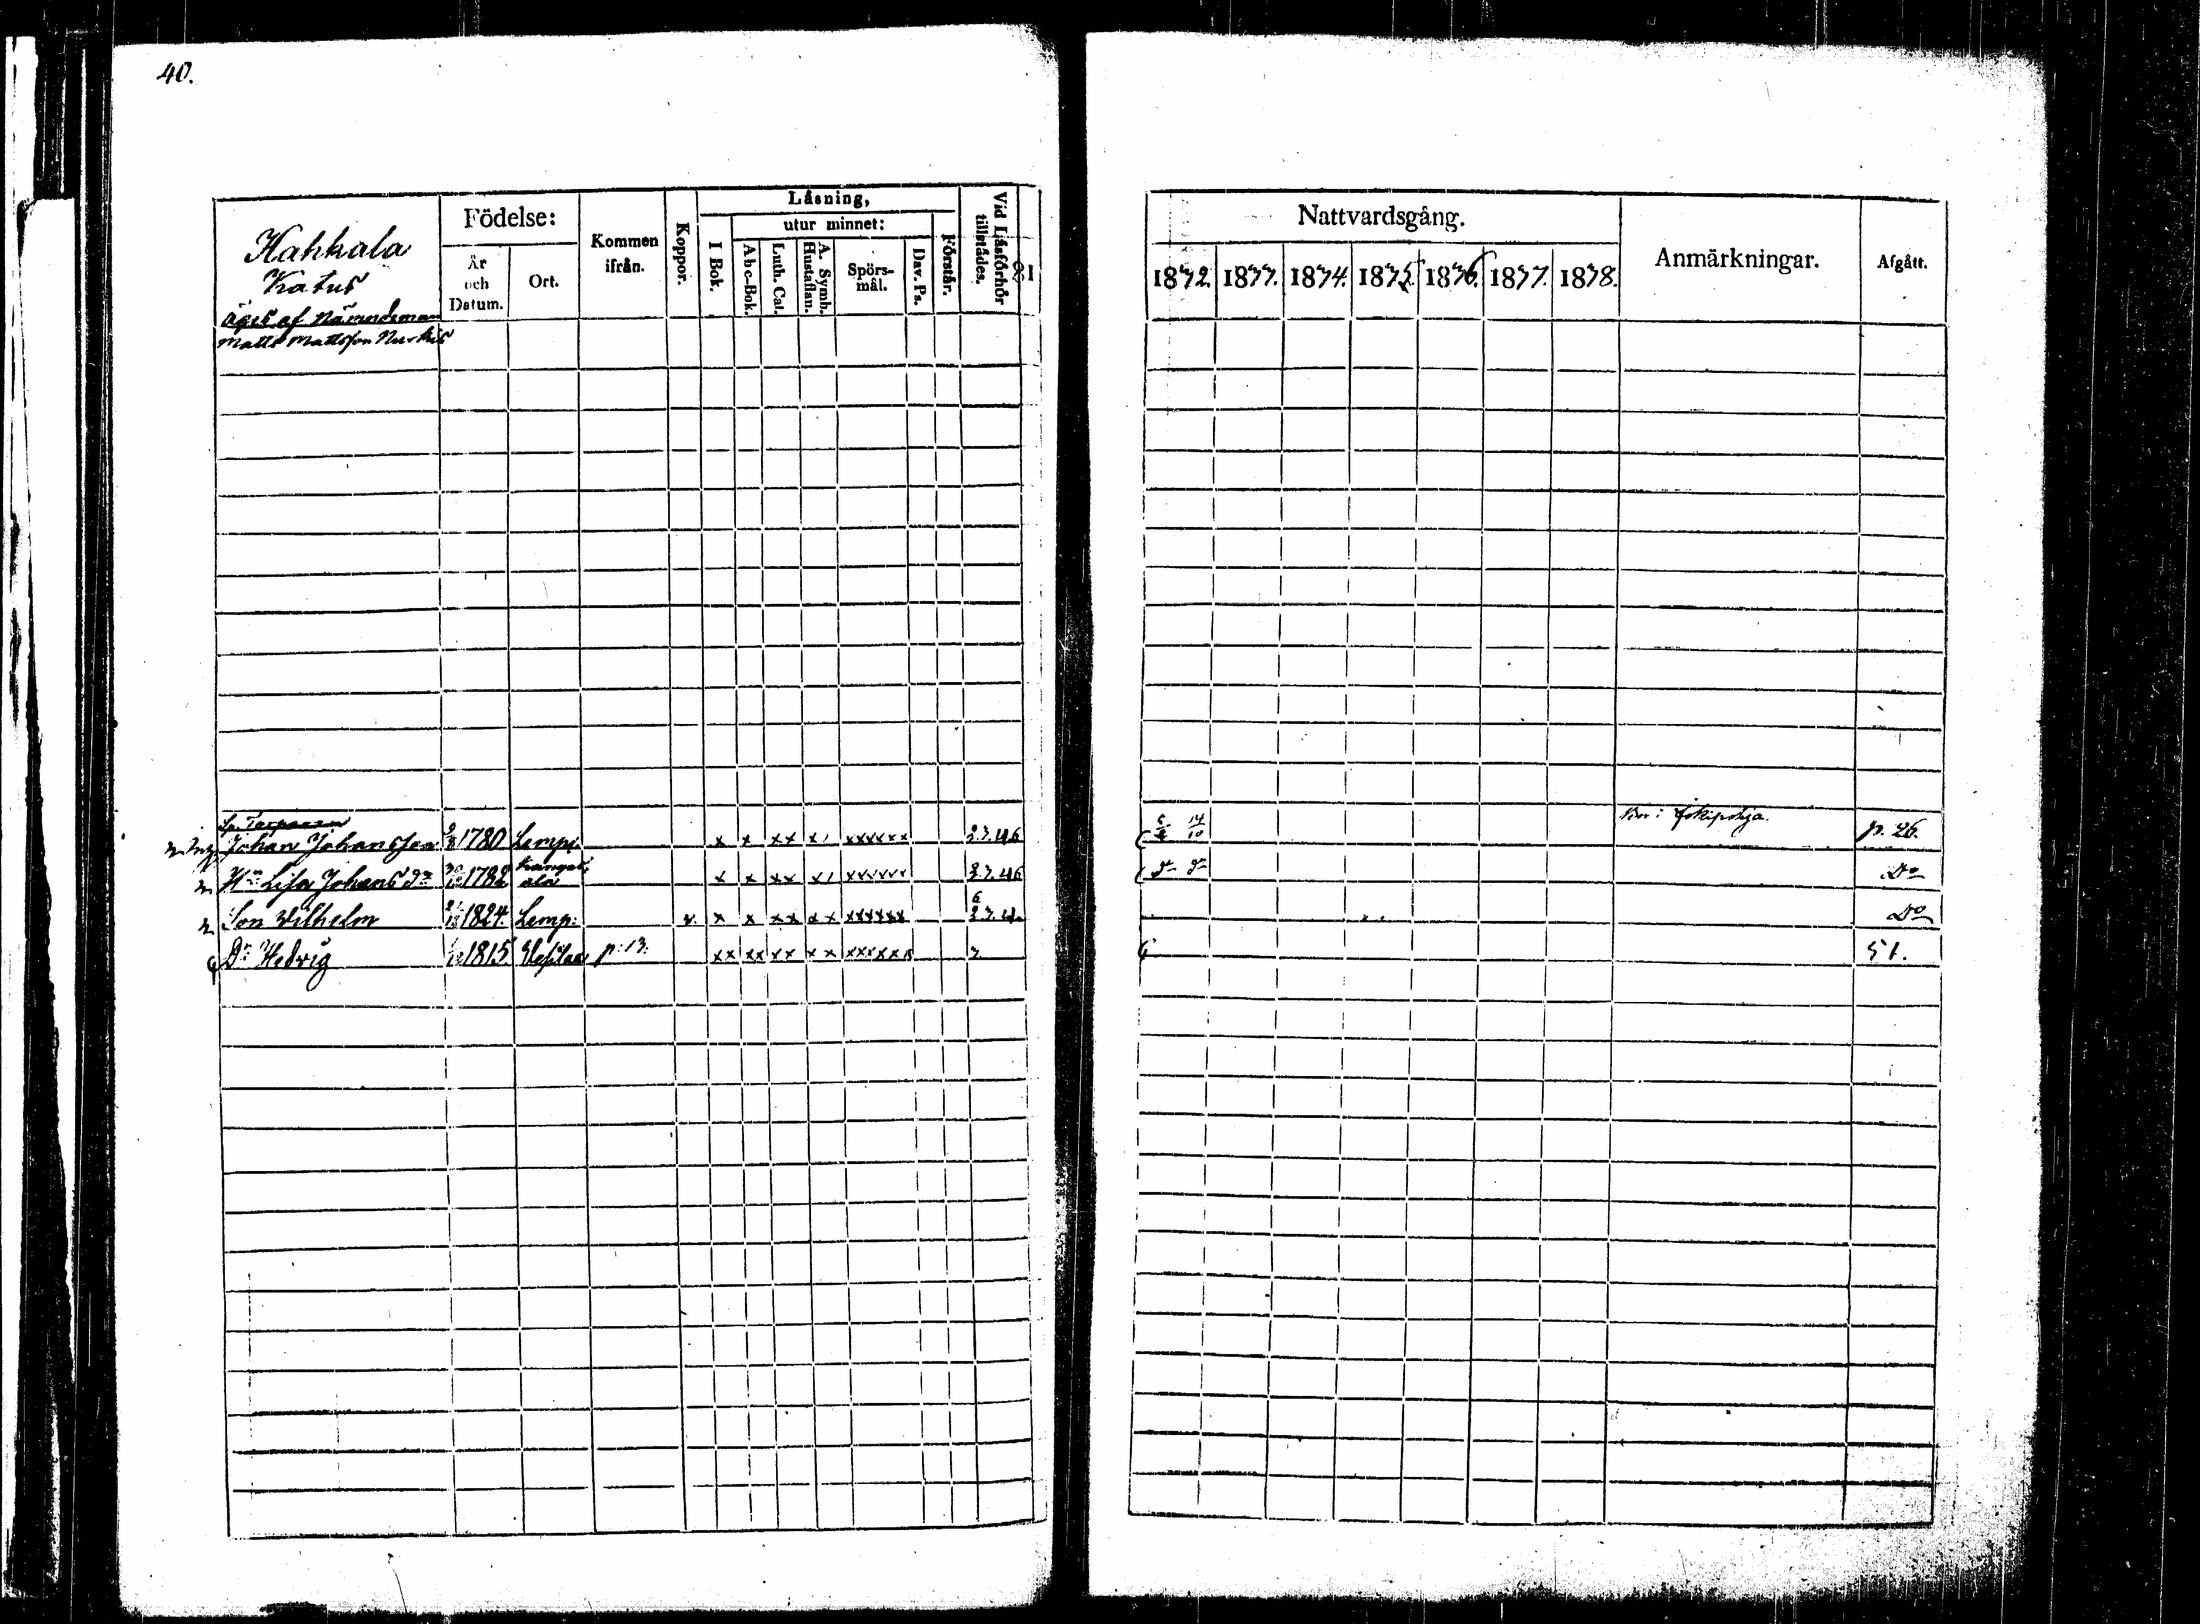 40.
Hahkala
Katus
Äges af Nämndeman
Matts Mattsson Nuskis
Födelse:
År och Datum.
Ort.
Kommen ifrån.
Koppor.
Läsning,
I Bok.
utur minnet:
Abc-Bok.
Luth. Cat.
A. Symb. Hustaflan.
Spörsmål.
Dav. Ps.
Förstår.
Vid Läsförhör tillstädes.
Nattvardsgång.
1872. 1877. 1874. 1875. 1876. 1877. 1878.
Anmärkningar.
Afgått.
Johan Johansson 1780 Lemp. x x xx x xxxxxx 2.3.4.6 14/10 p. 26.
Hu Lisa Johansdr 1782 Kangasala x x xx x xxxxxx 2.3.4.6 Do
Son Wilhelm 1824. Lemp: v. x x xx xx xxxxxx 2.3.4. 6 Do
Dr Hedvig 1815 p: 13. xx xx xx xx xxxxxx 51.